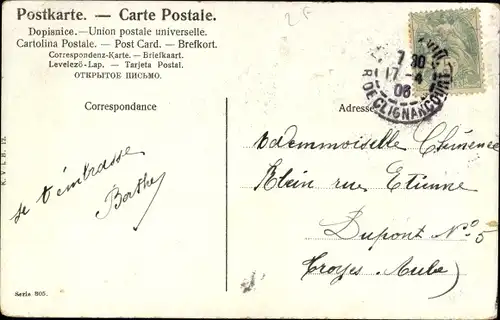 Postkarte. — Carte Postale.
Dopisnice. — Union postale universelle.
Cartolina Postale. — Post Card. — Brefkort.
Correspondenz-Karte. — Briefkaart.
Levelező-Lap. — Tarjeta Postal.
ОТКРЫТОЕ ПИСЬМО.
2F
7 30
17-4
06
R DE CLIGNANCOURT
Correspondance
Adresse
je t'embrasse
Berthe
Mademoiselle Clémence
Klein rue Etienne
Dupont No 5
Troyes. Aube)
K. V. i. B. 12.
Serie 805.